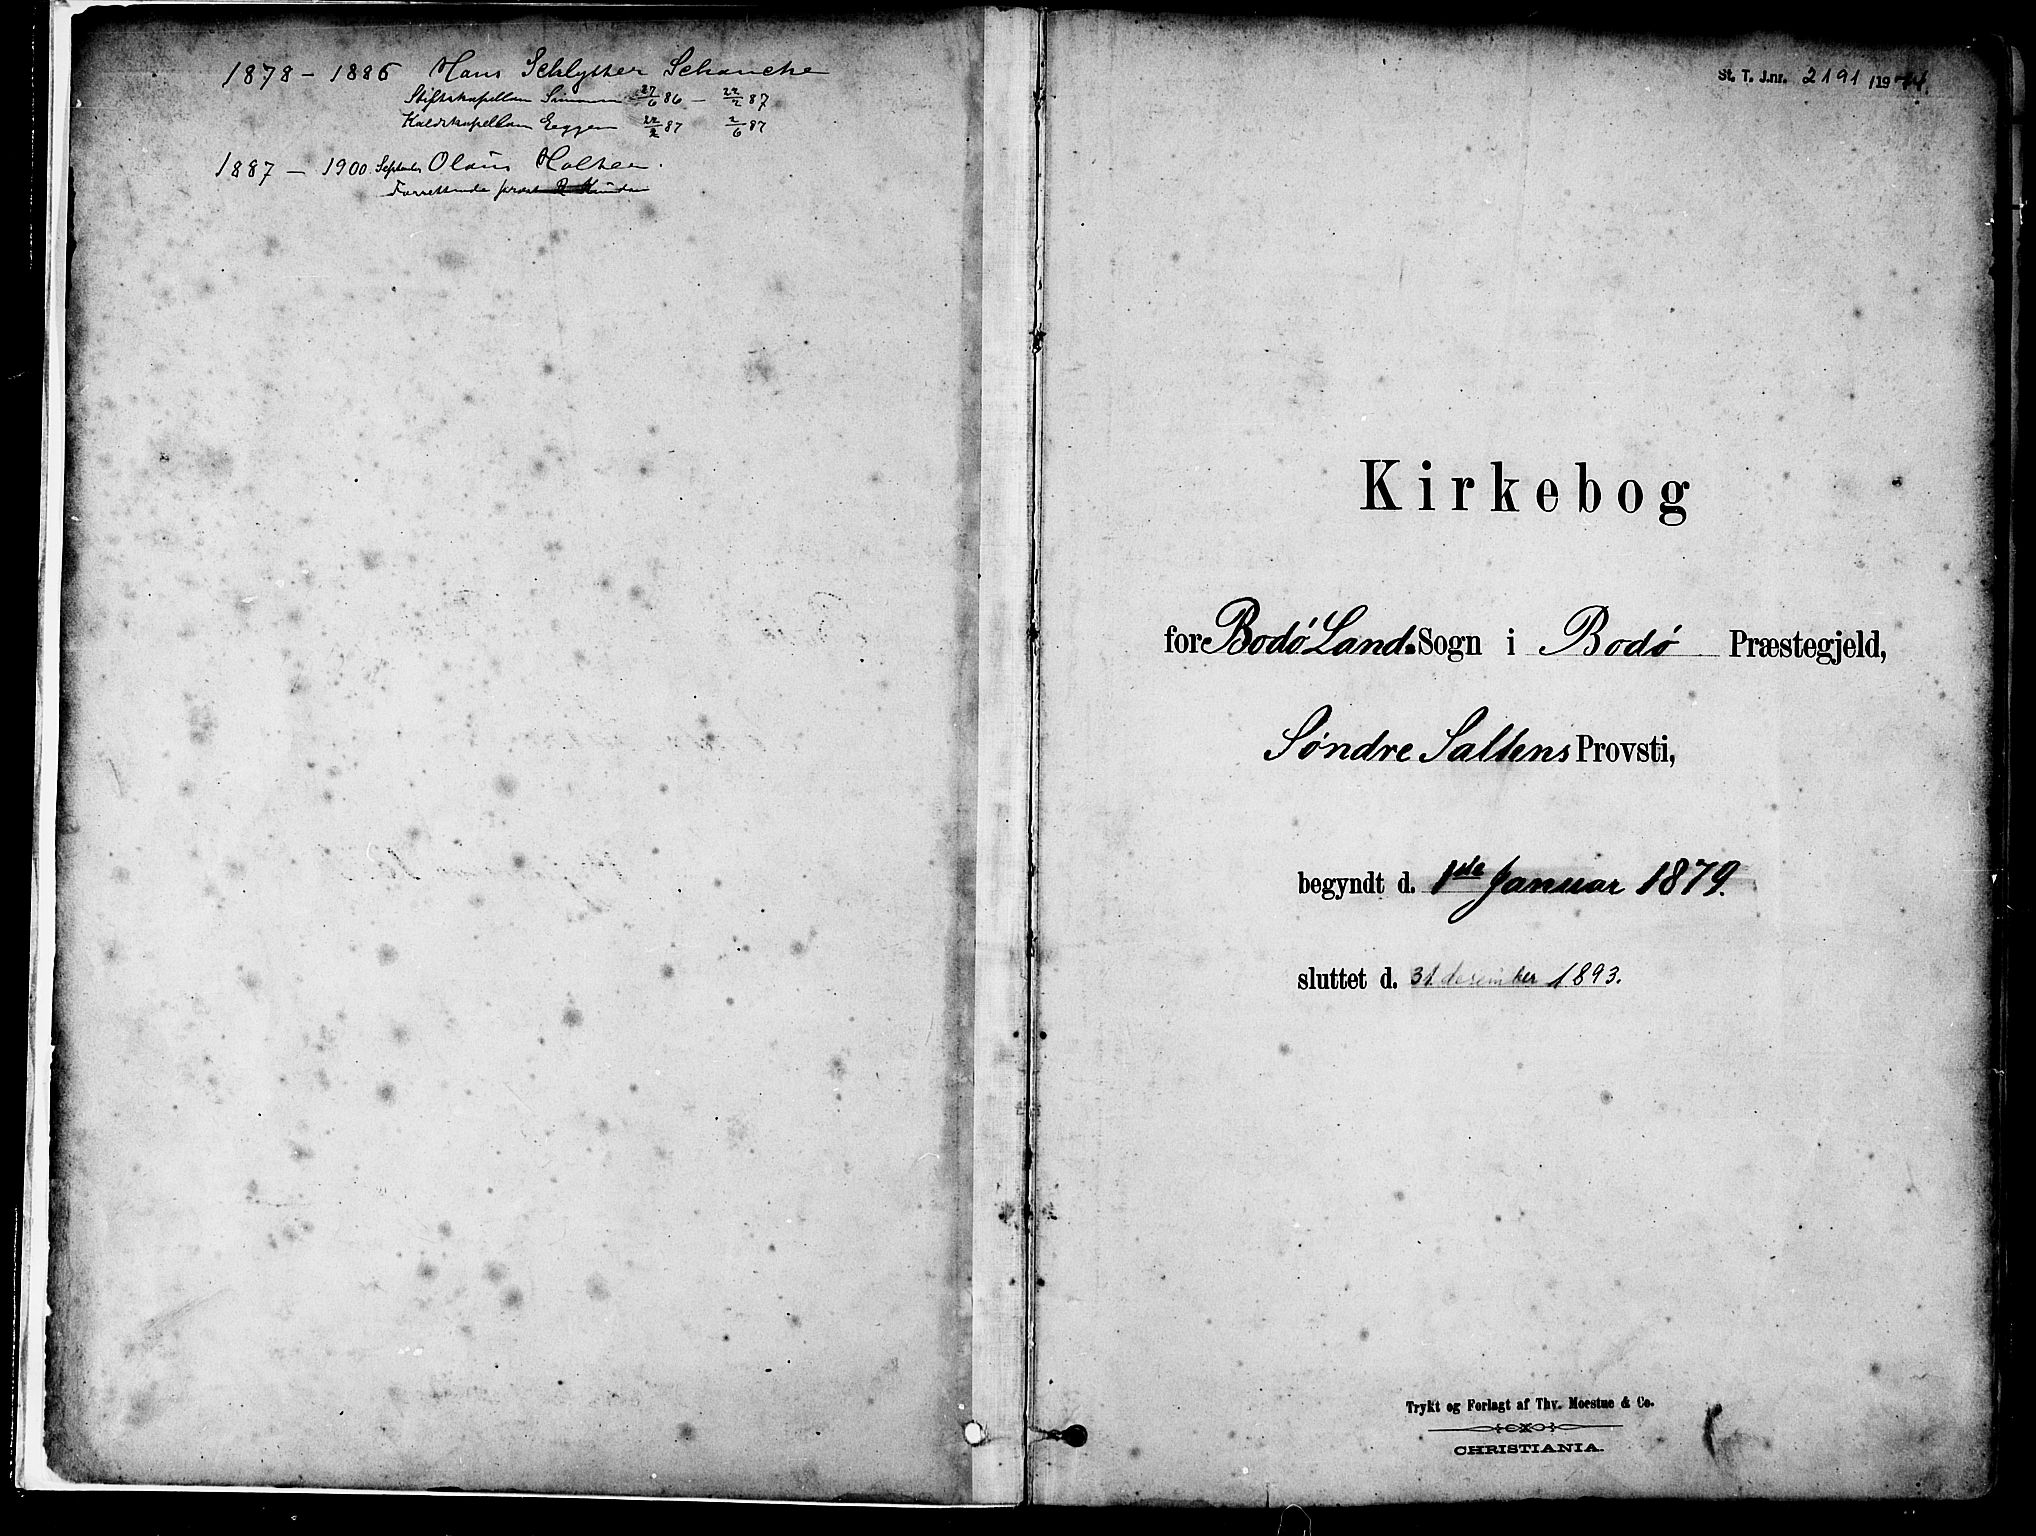 1878 – 1886 Hans Schlytter Schancke
Stiftskapellan 27/6 86 – 22/2 87
Kaldskapellan Eeggen 22/2 87 2/6 87
1887 – 1900. September Olaus Holter.
St. T. J.nr. 2191 /19
Kirkebog
for Bodø Land. Sogn i Bodø Præstegjeld,
Søndre Saltens Provsti,
begyndt d. 1ste Januar 1879.
sluttet d. 31. desember 1893.
Trykt og Forlagt af Thv. Moestue & Co.
CHRISTIANIA.